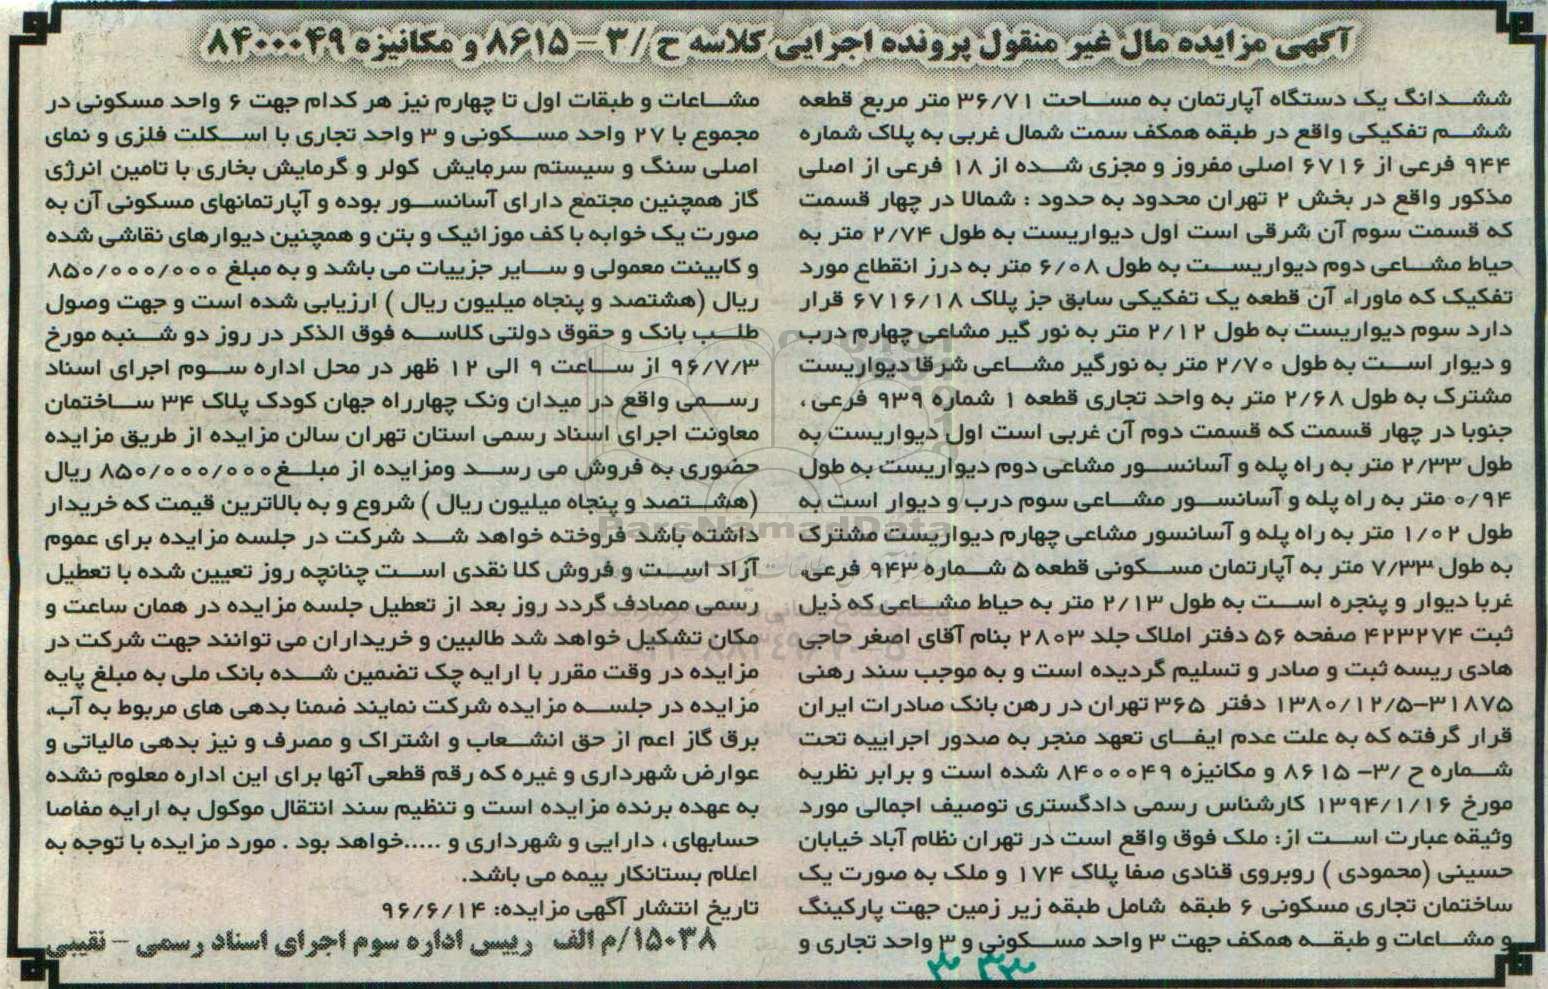 آگهی مزایده مال غیر منقول پرونده اجرایی کلاسه ح /۳ – ۸۶۱۵ و مکانیزه ۸۴۰۰۰۴۹
ششدانگ یک دستگاه آپارتمان به مساحت ۳۶/۷۱ متر مربع قطعه
ششم تفکیکی واقع در طبقه همکف سمت شمال غربی به پلاک شماره
۹۴۴ فرعی از ۶۷۱۶ اصلی مفروز و مجزی شده از ۱۸ فرعی از اصلی
مذکور واقع در بخش ۲ تهران محدود به حدود : شمالا در چهار قسمت
که قسمت سوم آن شرقی است اول دیواریست به طول ۲/۷۴ متر به
حیاط مشاعی دوم دیواریست به طول ۶/۰۸ متر به درز انقطاع مورد
تفکیک که ماوراء آن قطعه یک تفکیکی سابق جز پلاک ۶۷۱۶/۱۸ قرار
دارد سوم دیواریست به طول ۲/۱۲ متر به نور گیر مشاعی چهارم درب
و دیوار است به طول ۲/۷۰ متر به نورگیر مشاعی شرقا دیواریست
مشترک به طول ۲/۶۸ متر به واحد تجاری قطعه ۱ شماره ۹۳۹ فرعی ،
جنوبا در چهار قسمت که قسمت دوم آن غربی است اول دیواریست به
طول ۲/۳۳ متر به راه پله و آسانسور مشاعی دوم دیواریست به طول
۰/۹۴ متر به راه پله و آسانسور مشاعی سوم درب و دیوار است به
طول ۱/۰۲ متر به راه پله و آسانسور مشاعی چهارم دیواریست مشترک
به طول ۷/۳۳ متر به آپارتمان مسکونی قطعه ۵ شماره ۹۴۳ فرعی،
غربا دیوار و پنجره است به طول ۲/۱۳ متر به حیاط مشاعی که ذیل
ثبت ۴۲۳۲۷۴ صفحه ۵۶ دفتر املاک جلد ۲۸۰۳ بنام آقای اصغر حاجی
هادی ریسه ثبت و صادر و تسلیم گردیده است و به موجب سند رهنی
۳۱۸۷۵–۱۳۸۰/۱۲/۵ دفتر ۳۶۵ تهران در رهن بانک صادرات ایران
قرار گرفته که به علت عدم ایفای تعهد منجر به صدور اجراییه تحت
شماره ح /۳– ۸۶۱۵ و مکانیزه ۸۴۰۰۰۴۹ شده است و برابر نظریه
مورخ ۱۳۹۴/۱/۱۶ کارشناس رسمی دادگستری توصیف اجمالی مورد
وثیقه عبارت است از: ملک فوق واقع است در تهران نظام آباد خیابان
حسینی (محمودی ) روبروی قنادی صفا پلاک ۱۷۴ و ملک به صورت یک
ساختمان تجاری مسکونی ۶ طبقه شامل طبقه زیر زمین جهت پارکینگ
و مشاعات و طبقه همکف جهت ۳ واحد مسکونی و ۳ واحد تجاری و
مشاعات و طبقات اول تا چهارم نیز هر کدام جهت ۶ واحد مسکونی در
مجموع با ۲۷ واحد مسکونی و ۳ واحد تجاری با اسکلت فلزی و نمای
اصلی سنگ و سیستم سرمایش کولر و گرمایش بخاری با تامین انرژی
گاز همچنین مجتمع دارای آسانسور بوده و آپارتمانهای مسکونی آن به
صورت یک خوابه با کف موزائیک و بتن و همچنین دیوارهای نقاشی شده
و کابینت معمولی و سایر جزییات می باشد و به مبلغ ۸۵۰/۰۰۰/۰۰۰
ریال (هشتصد و پنجاه میلیون ریال ) ارزیابی شده است و جهت وصول
طلب بانک و حقوق دولتی کلاسه فوق الذکر در روز دو شنبه مورخ
۹۶/۷/۳ از ساعت ۹ الی ۱۲ ظهر در محل اداره سوم اجرای اسناد
رسمی واقع در میدان ونک چهارراه جهان کودک پلاک ۳۴ ساختمان
معاونت اجرای اسناد رسمی استان تهران سالن مزایده از طریق مزایده
حضوری به فروش می رسد ومزایده از مبلغ ۸۵۰/۰۰۰/۰۰۰ ریال
(هشتصد و پنجاه میلیون ریال ) شروع و به بالاترین قیمت که خریدار
داشته باشد فروخته خواهد شد شرکت در جلسه مزایده برای عموم
آزاد است و فروش کلا نقدی است چنانچه روز تعیین شده با تعطیل
رسمی مصادف گردد روز بعد از تعطیل جلسه مزایده در همان ساعت و
مکان تشکیل خواهد شد طالبین و خریداران می توانند جهت شرکت در
مزایده در وقت مقرر با ارایه چک تضمین شده بانک ملی به مبلغ پایه
مزایده در جلسه مزایده شرکت نمایند ضمنا بدهی های مربوط به آب،
برق گاز اعم از حق انشعاب و اشتراک و مصرف و نیز بدهی مالیاتی و
عوارض شهرداری و غیره که رقم قطعی آنها برای این اداره معلوم نشده
به عهده برنده مزایده است و تنظیم سند انتقال موکول به ارایه مفاصا
حسابهای ، دارایی و شهرداری و .....خواهد بود . مورد مزایده با توجه به
اعلام بستانکار بیمه می باشد.
تاریخ انتشار آگهی مزایده: ۹۶/۶/۱۴
۱۵۰۳۸/م الف رییس اداره سوم اجرای اسناد رسمی – نقیبی
ParsNamadData